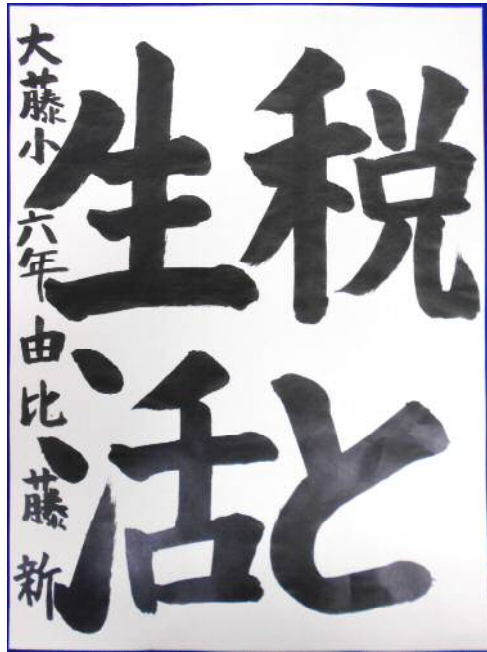 税と
生活
大藤小 六年 由比藤 新